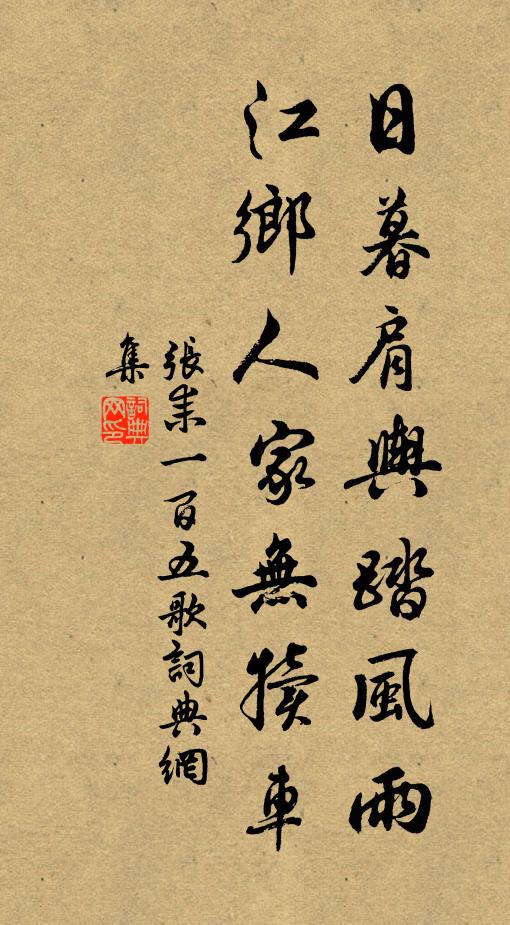 日暮肩輿踏風雨
江鄉人家無犢車
張耒一百五歌詞典網
集
詞典網印